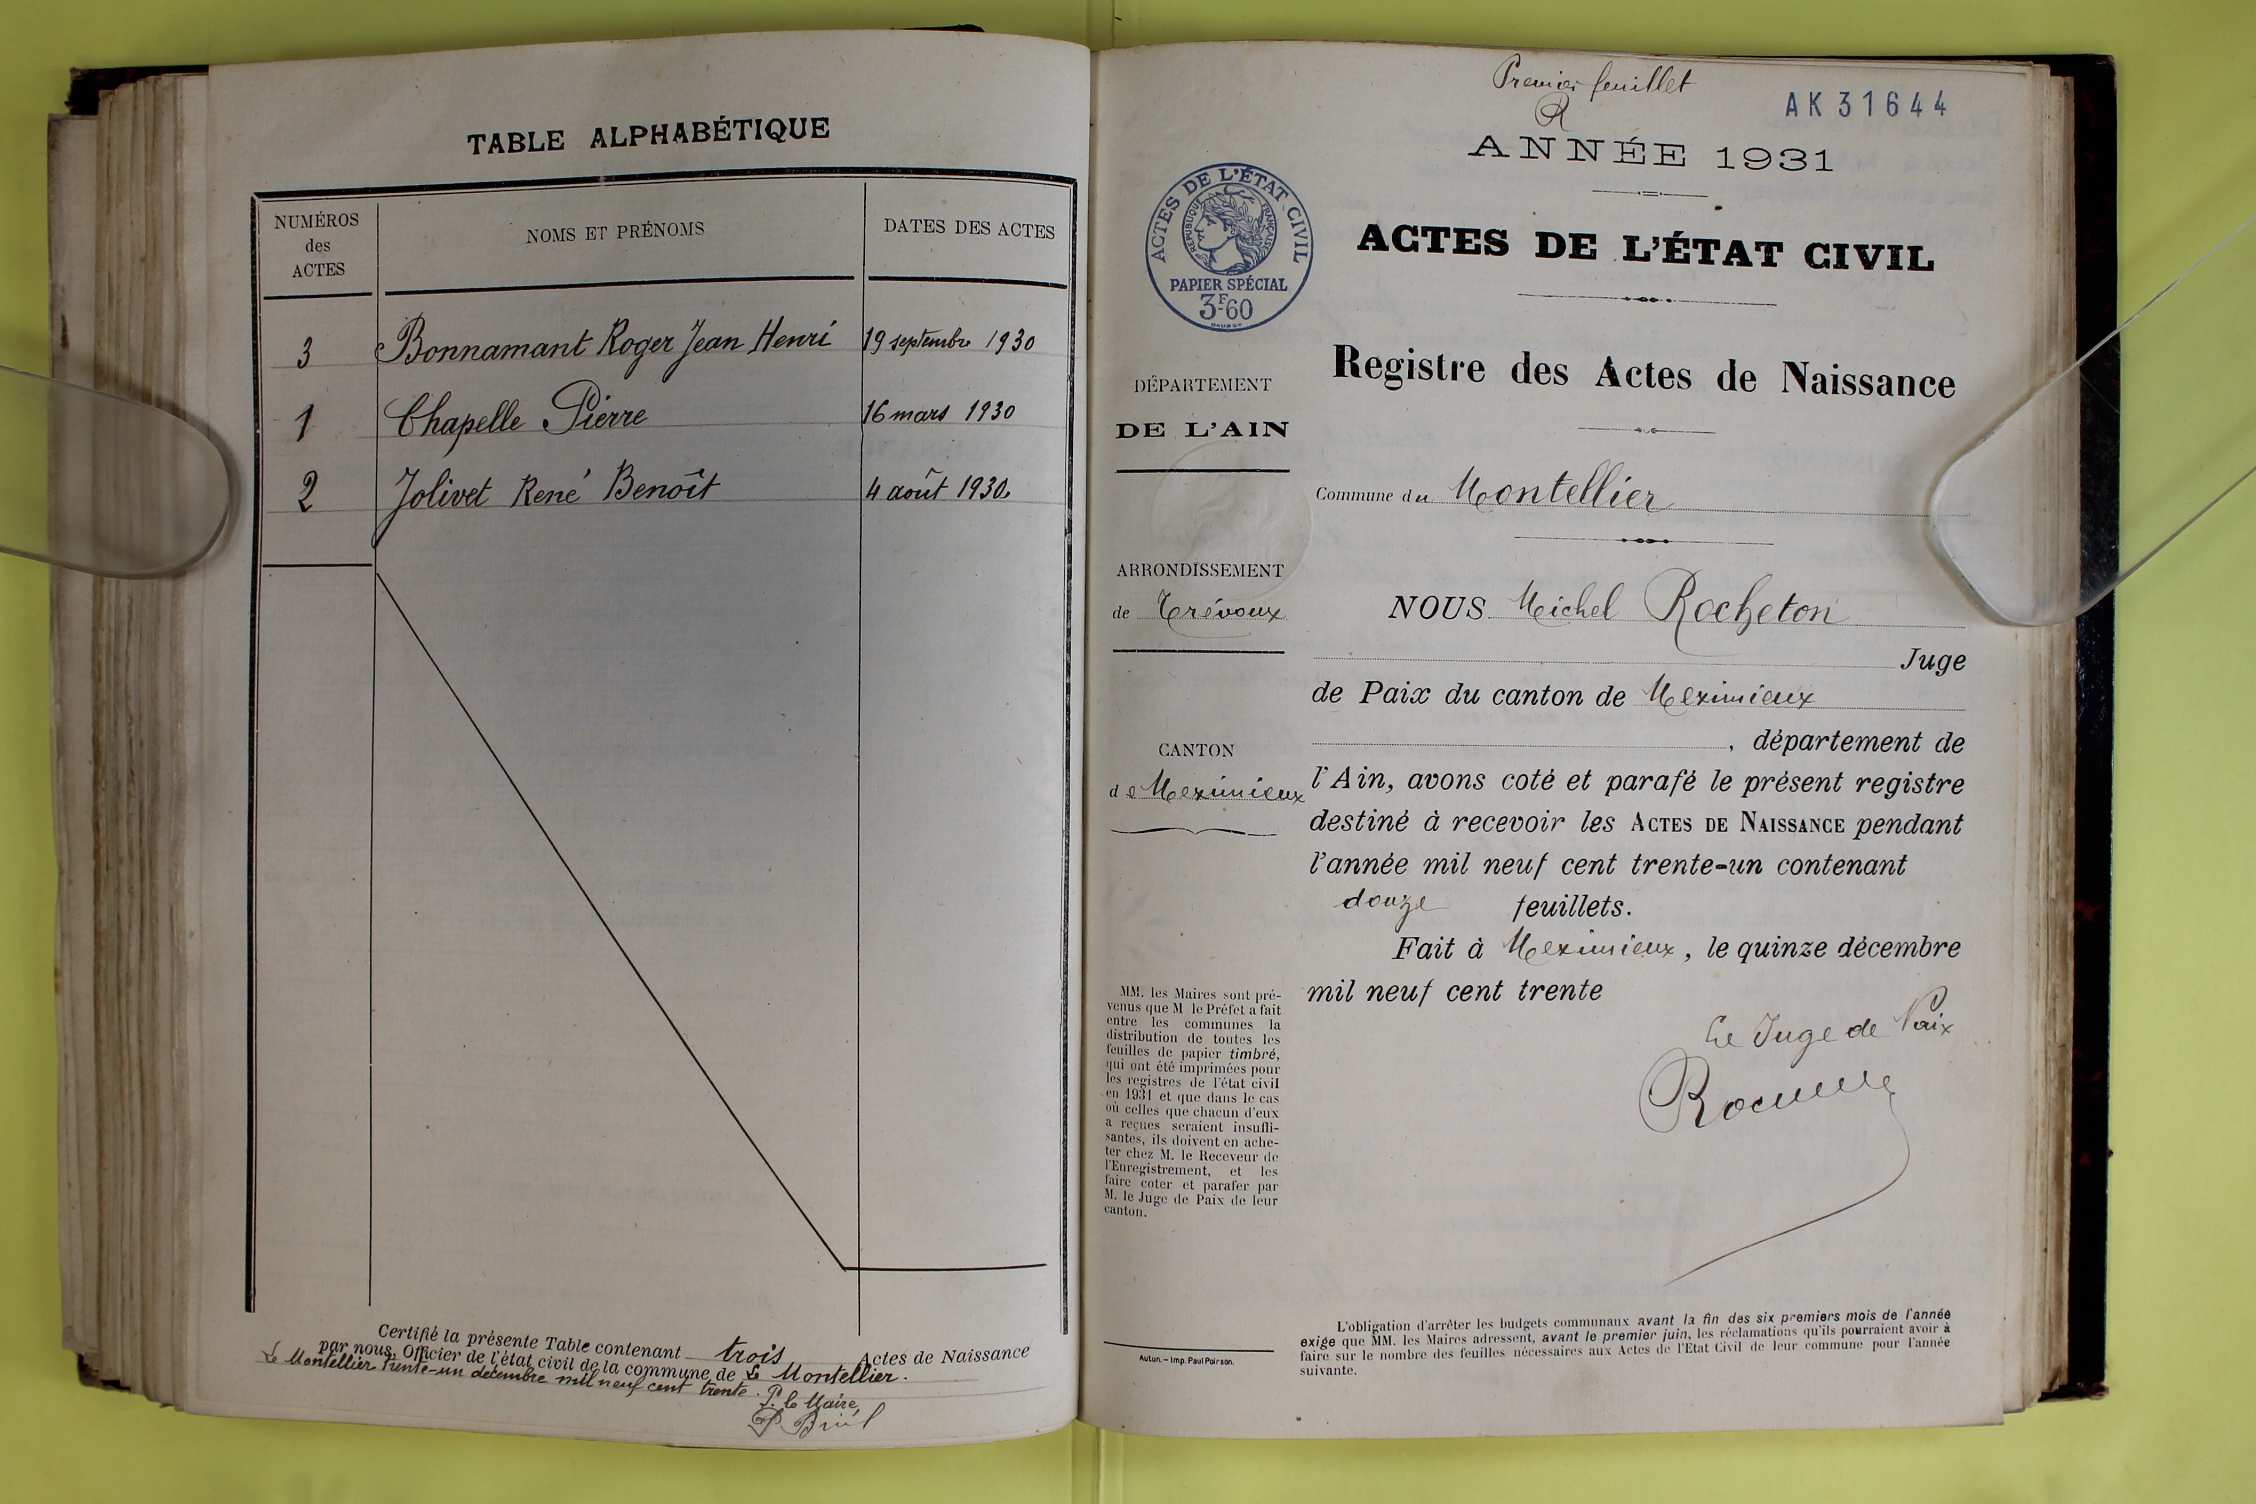 TABLE ALPHABÉTIQUE
NUMÉROS
des
ACTES
NOMS ET PRÉNOMS
DATES DES ACTES
3 Bonnamant Roger Jean Henri 19 septembre 1930
1 Chapelle Pierre 16 mars 1930
2 Jolivet René Benoît 4 août 1930
Certifié la présente Table contenant trois Actes de Naissance
par nous, Officier de l'état civil de la commune de Le Montellier.
Le Montellier trente-un décembre mil neuf cent trente.
P. le Maire,
Premier feuillet
R
AK 31644
ANNÉE 1931
ACTES DE L'ÉTAT CIVIL
RÉPUBLIQUE FRANÇAISE
PAPIER SPÉCIAL
3F60
ACTES DE L'ÉTAT CIVIL
Registre des Actes de Naissance
DÉPARTEMENT
DE L'AIN
Commune du Montellier
ARRONDISSEMENT
de Trévoux
CANTON
de Meximieux
NOUS Michel Rocheton
Juge
de Paix du canton de Meximieux
, département de
l'Ain, avons coté et parafé le présent registre
destiné à recevoir les ACTES DE NAISSANCE pendant
l'année mil neuf cent trente-un contenant
douze feuillets.
Fait à Meximieux, le quinze décembre
mil neuf cent trente
Le Juge de Paix
MM. les Maires sont pré-
venus que M le Préfet a fait
entre les communes la
distribution de toutes les
feuilles de papier timbré,
qui ont été imprimées pour
les registres de l'état civil
en 1931 et que dans le cas
où celles que chacun d'eux
a reçues seraient insuffi-
santes, ils doivent en ache-
ter chez M. le Receveur de
l'Enregistrement, et les
faire coter et parafer par
M. le Juge de Paix de leur
canton.
Autun. — Imp. Paul Poirson.
L'obligation d'arrêter les budgets communaux avant la fin des six premiers mois de l'année
exige que MM. les Maires adressent, avant le premier juin, les réclamations qu'ils pourraient avoir à
faire sur le nombre des feuilles nécessaires aux Actes de l'Etat Civil de leur commune pour l'année
suivante.